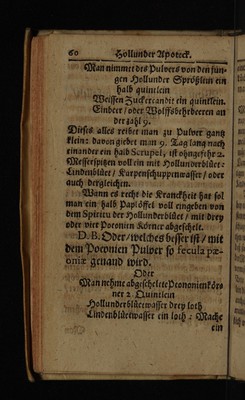 60 Hollunder Apoteck.
Man nimmet des Pulvers von den jun-
gen Hollunder Sprößlein ein
halb quintlein
Weissen Zuckercandit ein quintlein.
Einbeer / oder Wolffsbehrbeeren an
der zahl 9.
Dieses alles reibet man zu Pulver gantz
klein: davon giebet man 9. Tag lang nach
einander ein halb Scrupel / ist ohngefehr 2.
Messerspitzen voll ein mit Hollunderblüet-
Lindenblüet / Karpenschuppenwasser / oder
auch dergleichen.
Wann es recht die Kranckheit hat sol
man ein halb Paplöffel voll eingeben von
dem Spiritu der Hollunderblüet / mit drey
oder vier Poeonien Körner abgeschelt.
D. B. Oder / welches besser ist / mit
dem Poeonien Pulver so fecula pæ-
oniæ genand wird.
Oder
Man nehme abgeschelete Pæonienkörö
ner 2. Quintlein
Hollunderblüetwasser drey loth
Lindenblüetwasser ein loth: Mache
ein